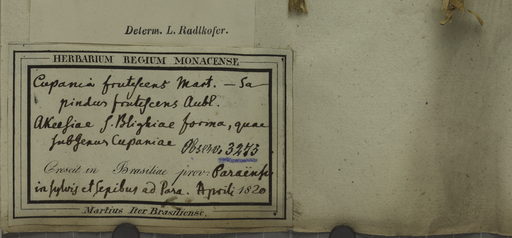 Determ. L. Radlkofer.
HERBARIUM REGIUM MONACENSE
Cupania frutescens Mart. – Sa
pindus frutescens Aubl.
Akeesiae s. Blighiae forma, quae
subgenus Cupaniae Observ. 3273
Crescit in Brasiliae prov: Paraënsi
in sylvis et sepibus ad Para. Aprili 1820
Martius Iter Brasiliense.